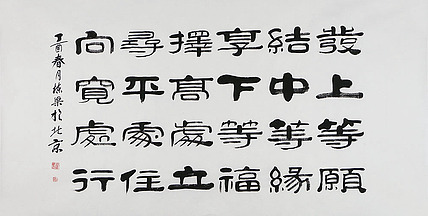 發上等願
結中等緣
享下等福
擇高處立
尋平處住
向寬處行
丁酉春月於北京